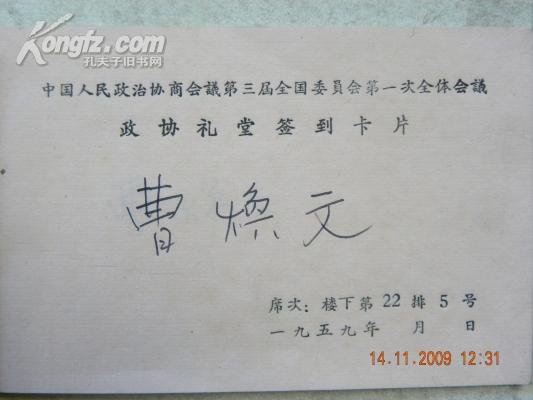 Kongfz.com
孔夫子旧书网
中国人民政治协商会議第三届全国委員会第一次全体会議
政协礼堂签到卡片
曹焕文
席次：楼下第22排5号
一九五九年　月　日
14.11.2009 12:31